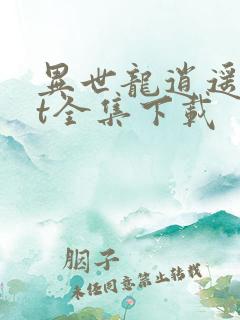 異世龍逍遥
t全集下載
胭子
未經同意禁止轉載